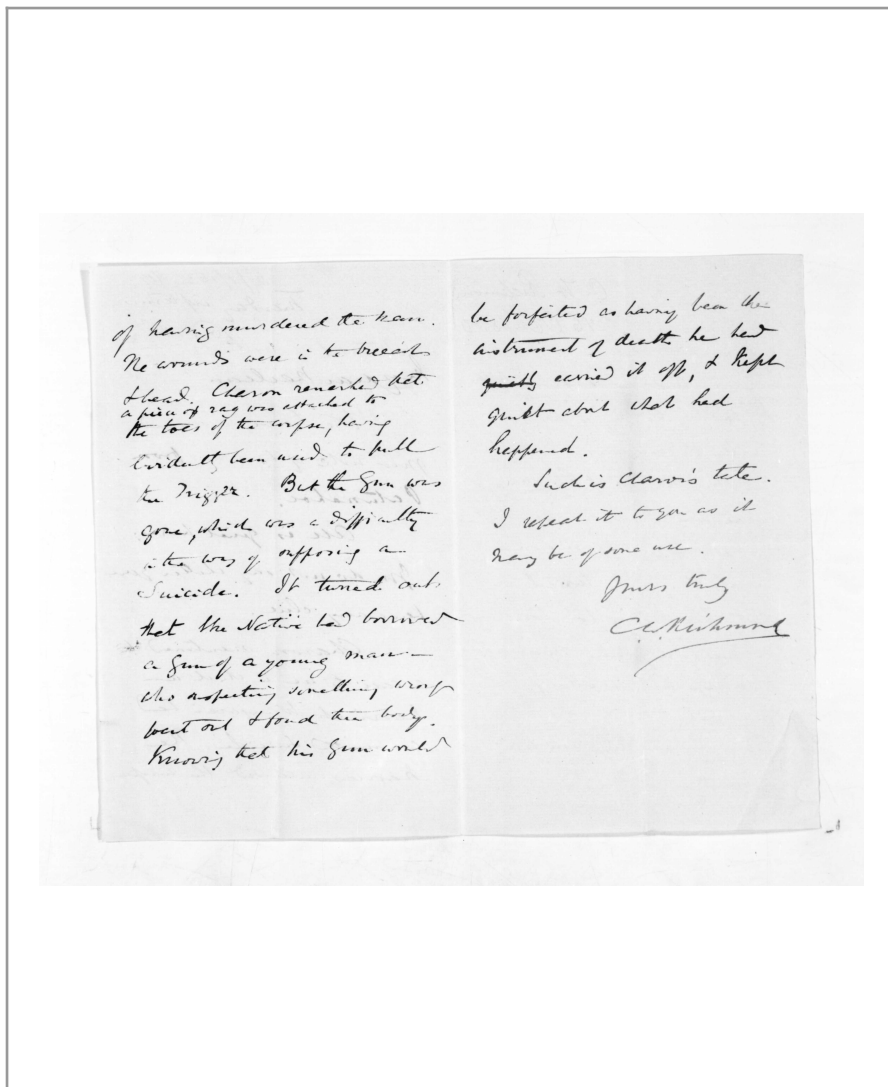 of having murdered the man.
The wounds were in the breast
& head. Charon remarked that
a piece of rag was attached to
the toes of the corpse, having
evidently been used to pull
the Trigger. But the Gun was
gone, which was a difficulty
in the way of supposing a
Suicide. It turned out
that the Native had borrowed
a Gun of a young man —
who suspecting something wrong
went out & found the body.
Knowing that his Gun would
be forfeited as having been the
instrument of death he had
quietly carried it off, & kept
quiet about what had
happened.
Such is tale.
I repeat it to you as it
may be of some use.
Yours truly
C W Richmond